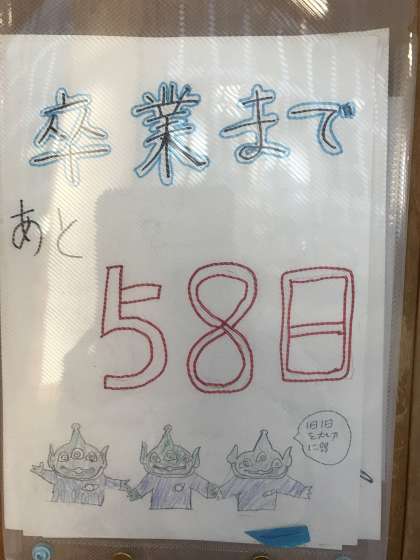 卒業まで
あと
58日
1日1日
を大切
に!!